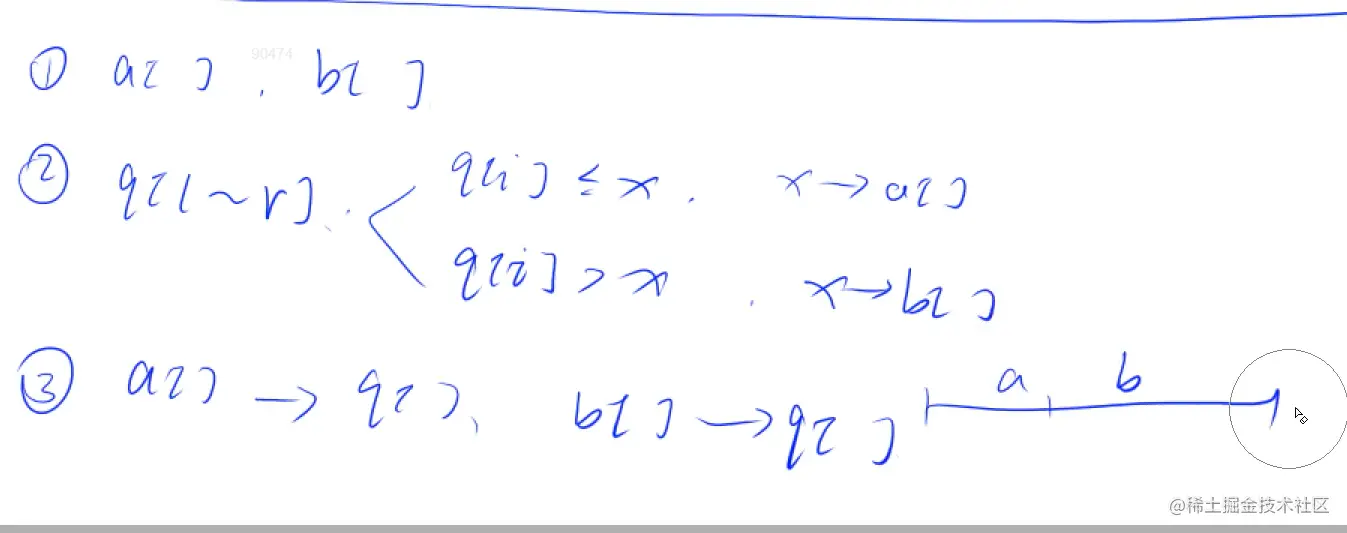 90474
① a[ ] , b[ ]
② q[l~r] .
q[i] ≤ x . x → a[ ]
q[i] > x . x → b[ ]
③ a[ ] → q[ ], b[ ] → q[ ] a b
@稀土掘金技术社区